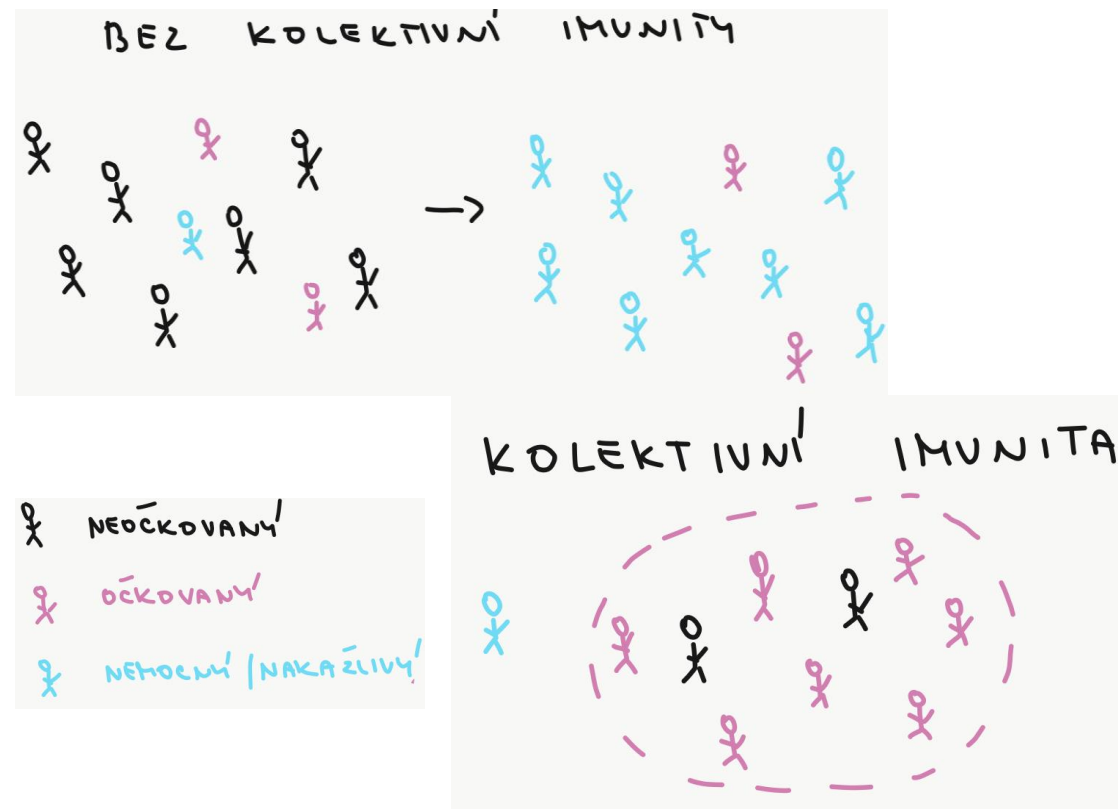 BEZ KOLEKTIVNÍ IMUNITY
KOLEKTIVNÍ IMUNITA
NEOČKOVANÝ
OČKOVANÝ
NEMOCNÝ/NAKAŽLIVÝ